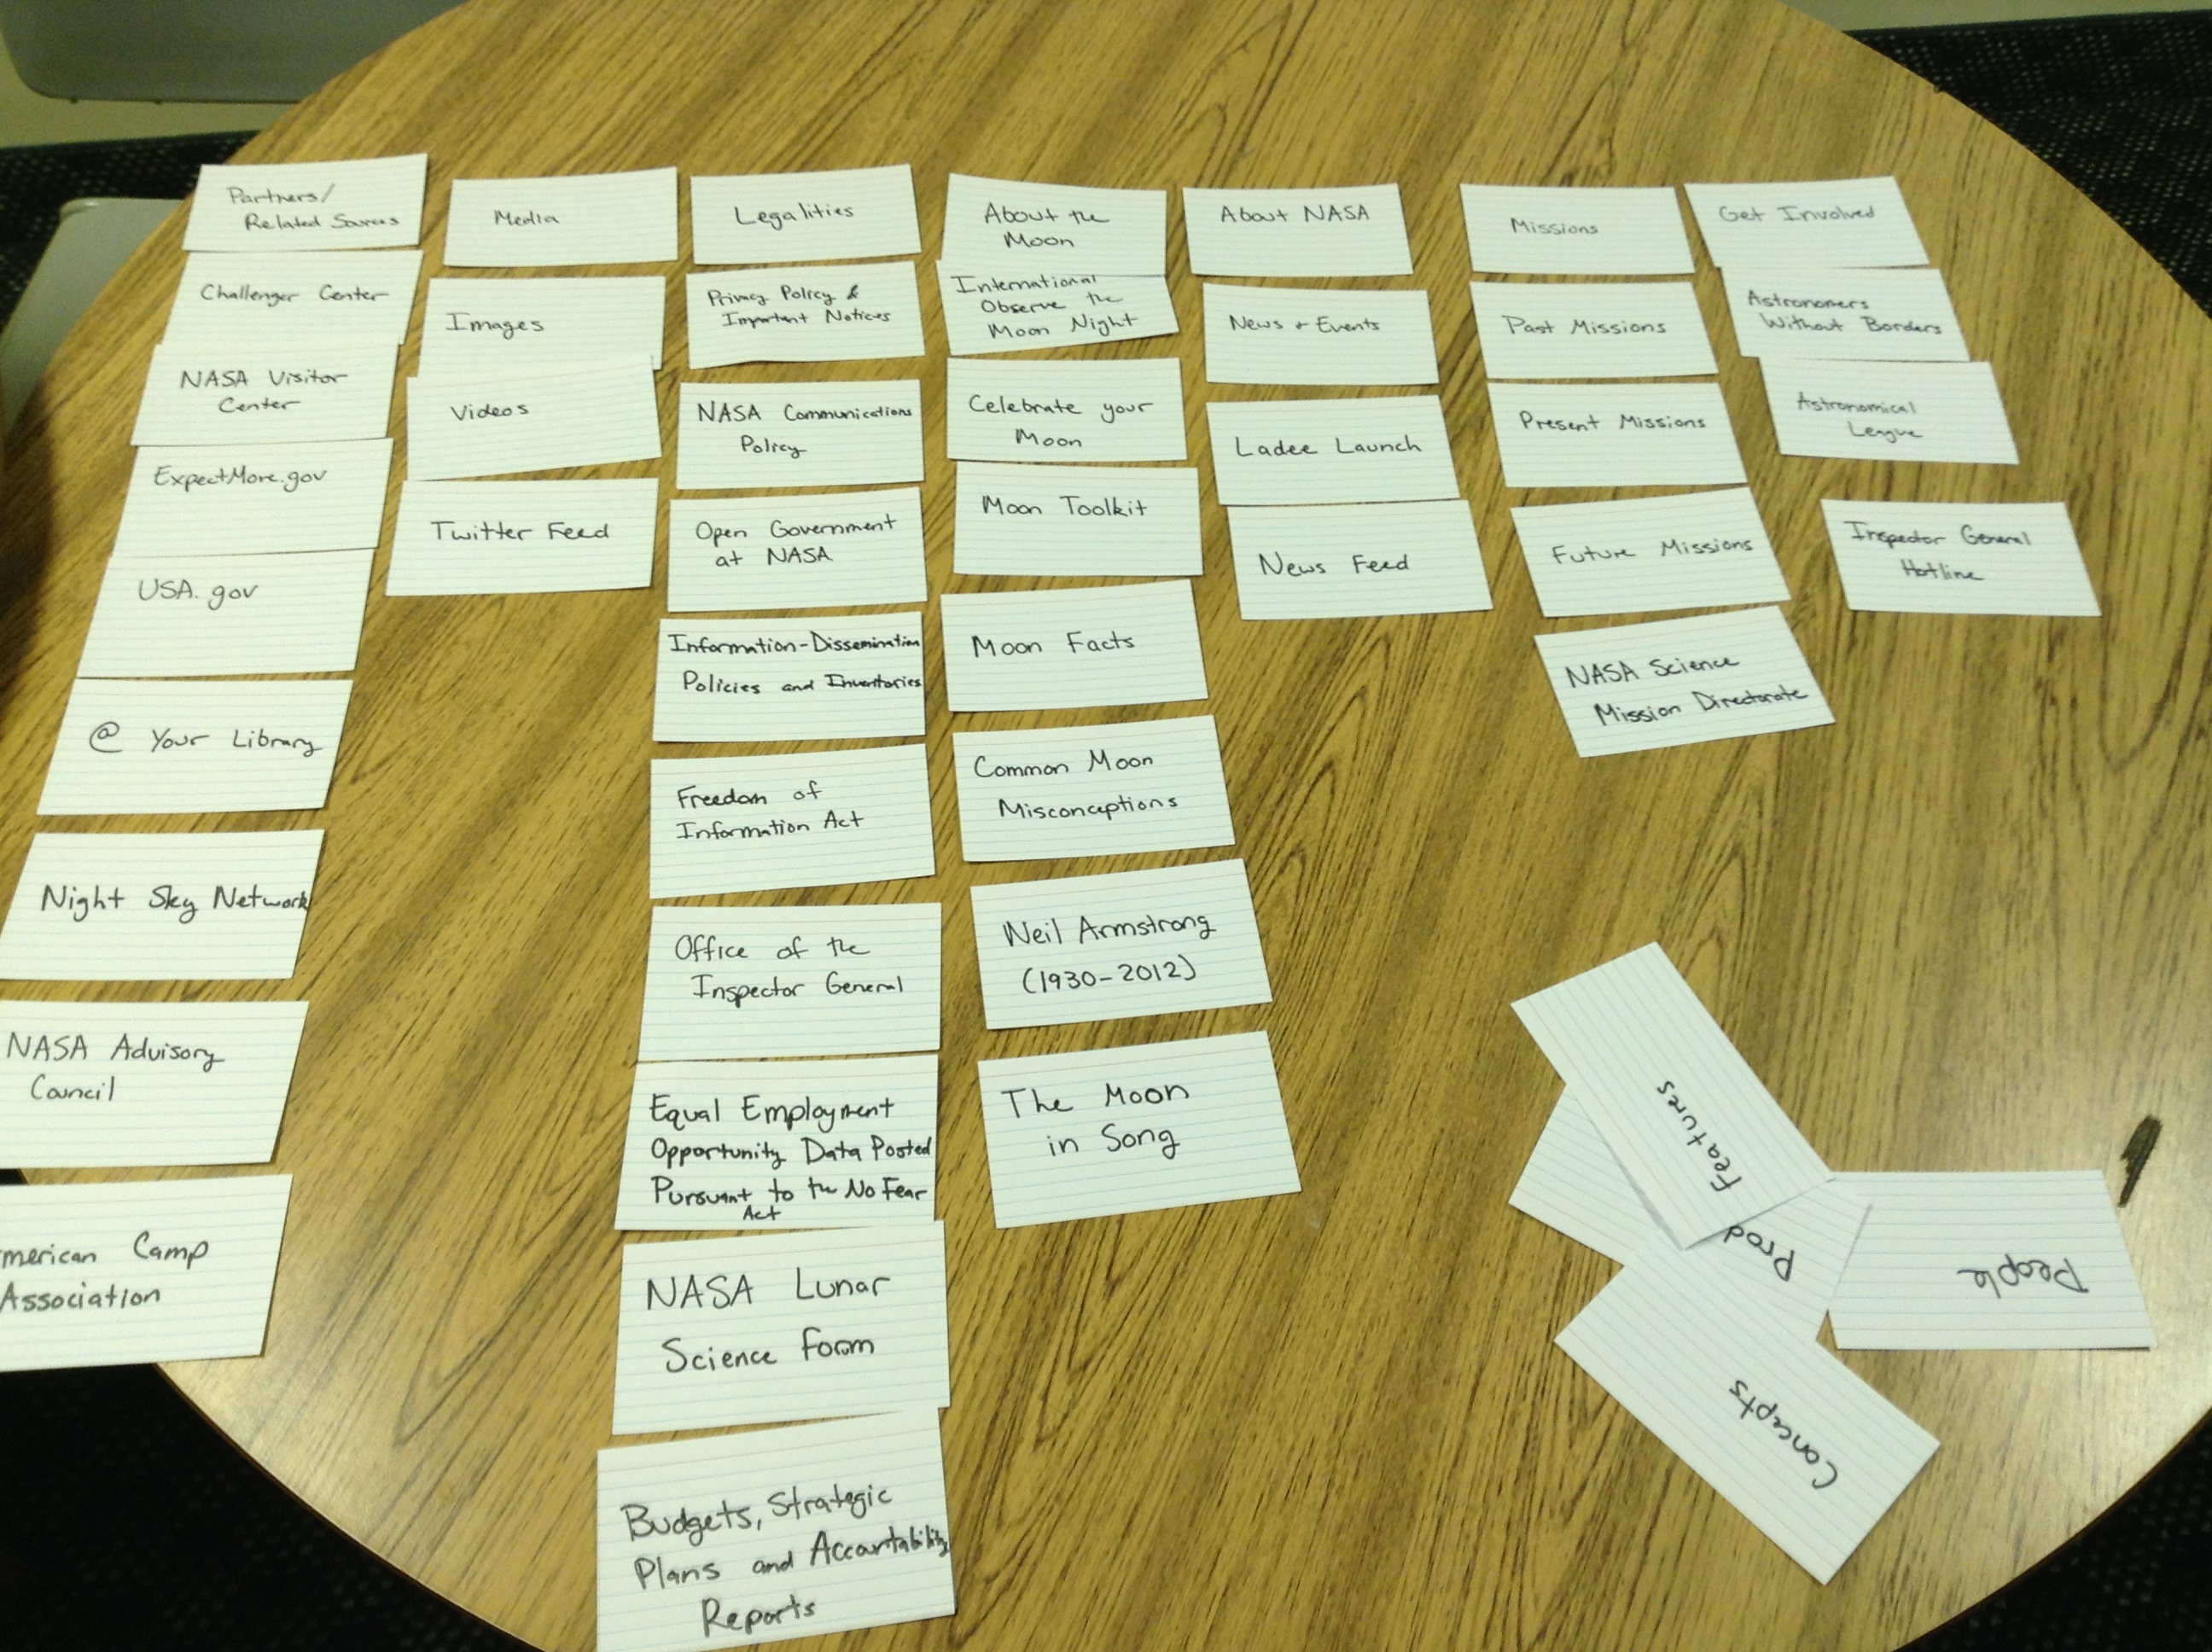 Partners/
Related Sources
Challenger Center
NASA Visitor
Center
ExpectMore.gov
USA.gov
@ Your Library
Night Sky Network
NASA Advisory
Council
merican Camp
Association
Media
Images
Videos
Twitter Feed
Legalities
Privacy Policy &
Important Notices
NASA Communications
Policy
Open Government
at NASA
Information-Dissemination
Policies and Inventories
Freedom of
Information Act
Office of the
Inspector General
Equal Employment
Opportunity Data Posted
Pursuant to the No Fear
Act
NASA Lunar
Science Form
Budgets, Strategic
Plans and Accountability
Reports
About the
Moon
International
Observe the
Moon Night
Celebrate your
Moon
Moon Toolkit
Moon Facts
Common Moon
Misconceptions
Neil Armstrong
(1930-2012)
The Moon
in Song
About NASA
News + Events
Ladee Launch
News Feed
Missions
Past Missions
Present Missions
Future Missions
NASA Science
Mission Directorate
Get Involved
Astronomers
Without Borders
Astronomical
League
Inspector General
Hotline
Features
Prod
People
Concepts